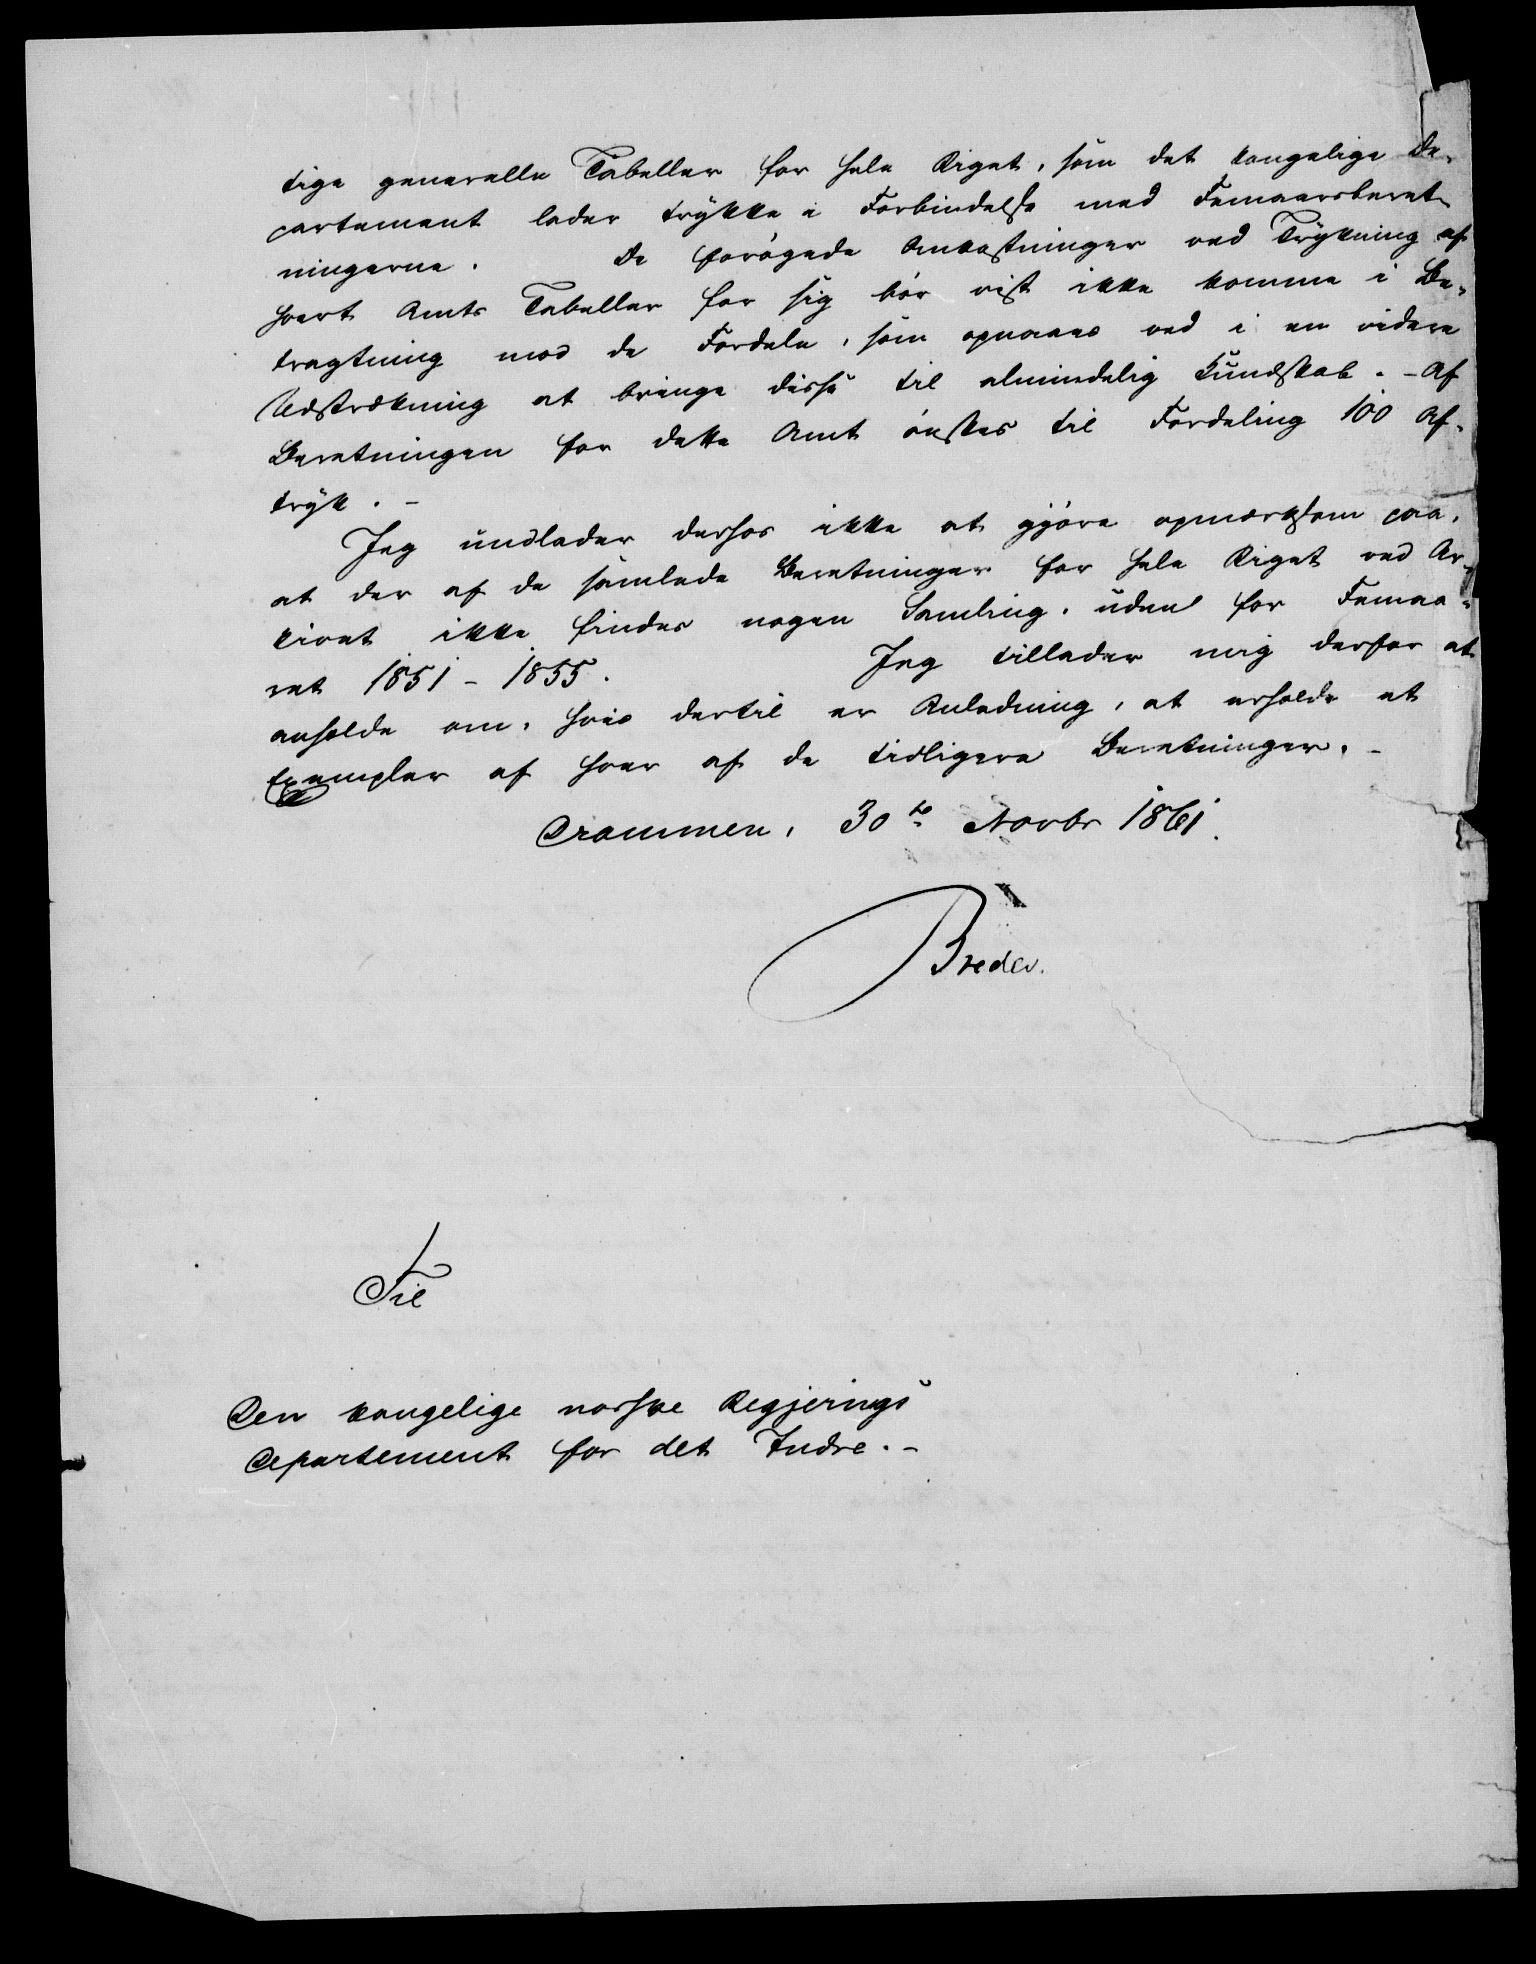 tige generelle Tabeller for hele Riget, som det kongelige De-
partement lader trykke i Forbindelse med Femaarsberet-
ningerne. De forøgede Omkostninger ved Trykning af
hvert Amts Tabeller for sig bør vist ikke komme i Be-
tragtning mod de Fordele, som opnaaes ved i en videre
Udstrækning at bringe disse til almindelig Kundskab. - Af
Beretningen for dette Amt ønskes til Fordeling 100 Af-
tryk. -
Jeg undlader derhos ikke at gjøre opmærksom paa,
at der af de samlede Beretninger for hele Riget ved Ar-
kivet ikke findes nogen Samling, uden for Femaa-
ret 1851 - 1855. Jeg tillader mig derfor at
anholde om, hvis dertil er Anledning, at erholde et
Exemplar af hver af de tidligere Beretninger. -
Drammen, 30te Novbr 1861.
Breder.
Til
Den kongelige norske Regjerings
Departement for det Indre. -